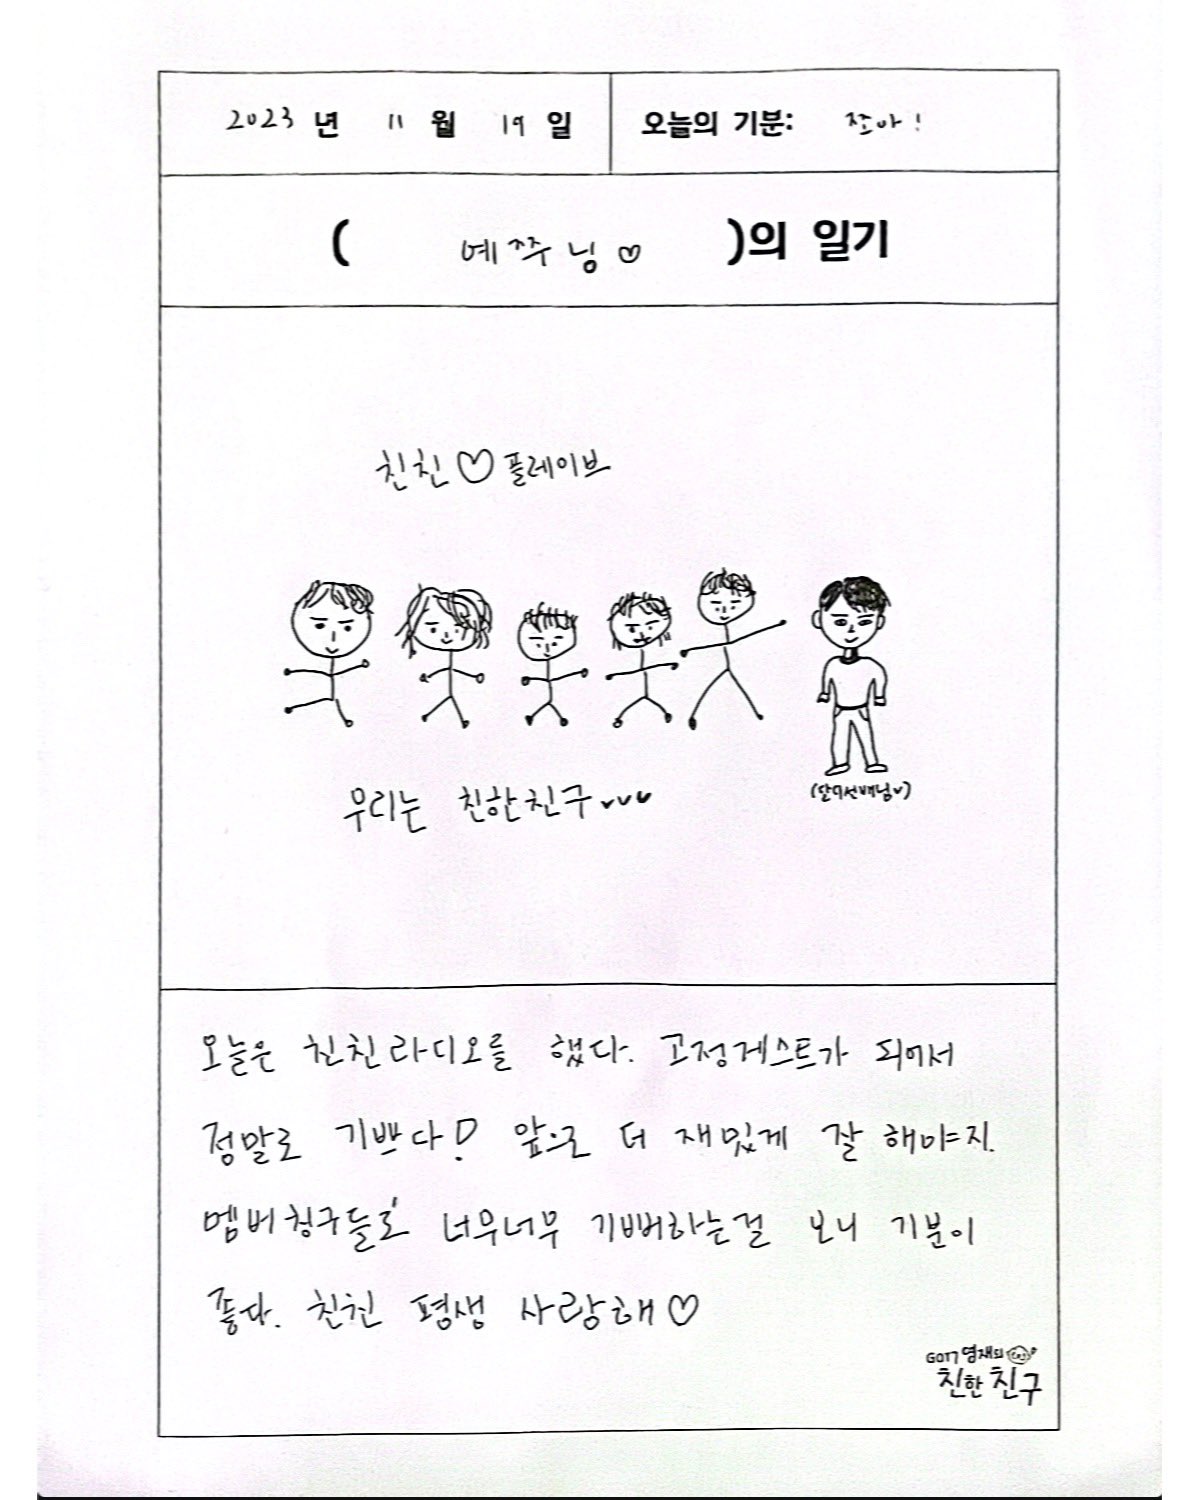 2023 년 11 월 19 일 오늘의 기분: 쪼아!
( 예쭈닝♡ )의 일기
친친♡플레이브
우리는 친한친구
(달이선배님♡)
오늘은 친친라디오를 했다. 고정게스트가 되어서
정말로 기쁘다! 앞으로 더 재밌게 잘 해야지.
멤버칭구들로 너무너무 기뻐하는걸 보니 기분이
좋다. 친친 평생 사랑해♡
GOT7 영재의
친한 친구